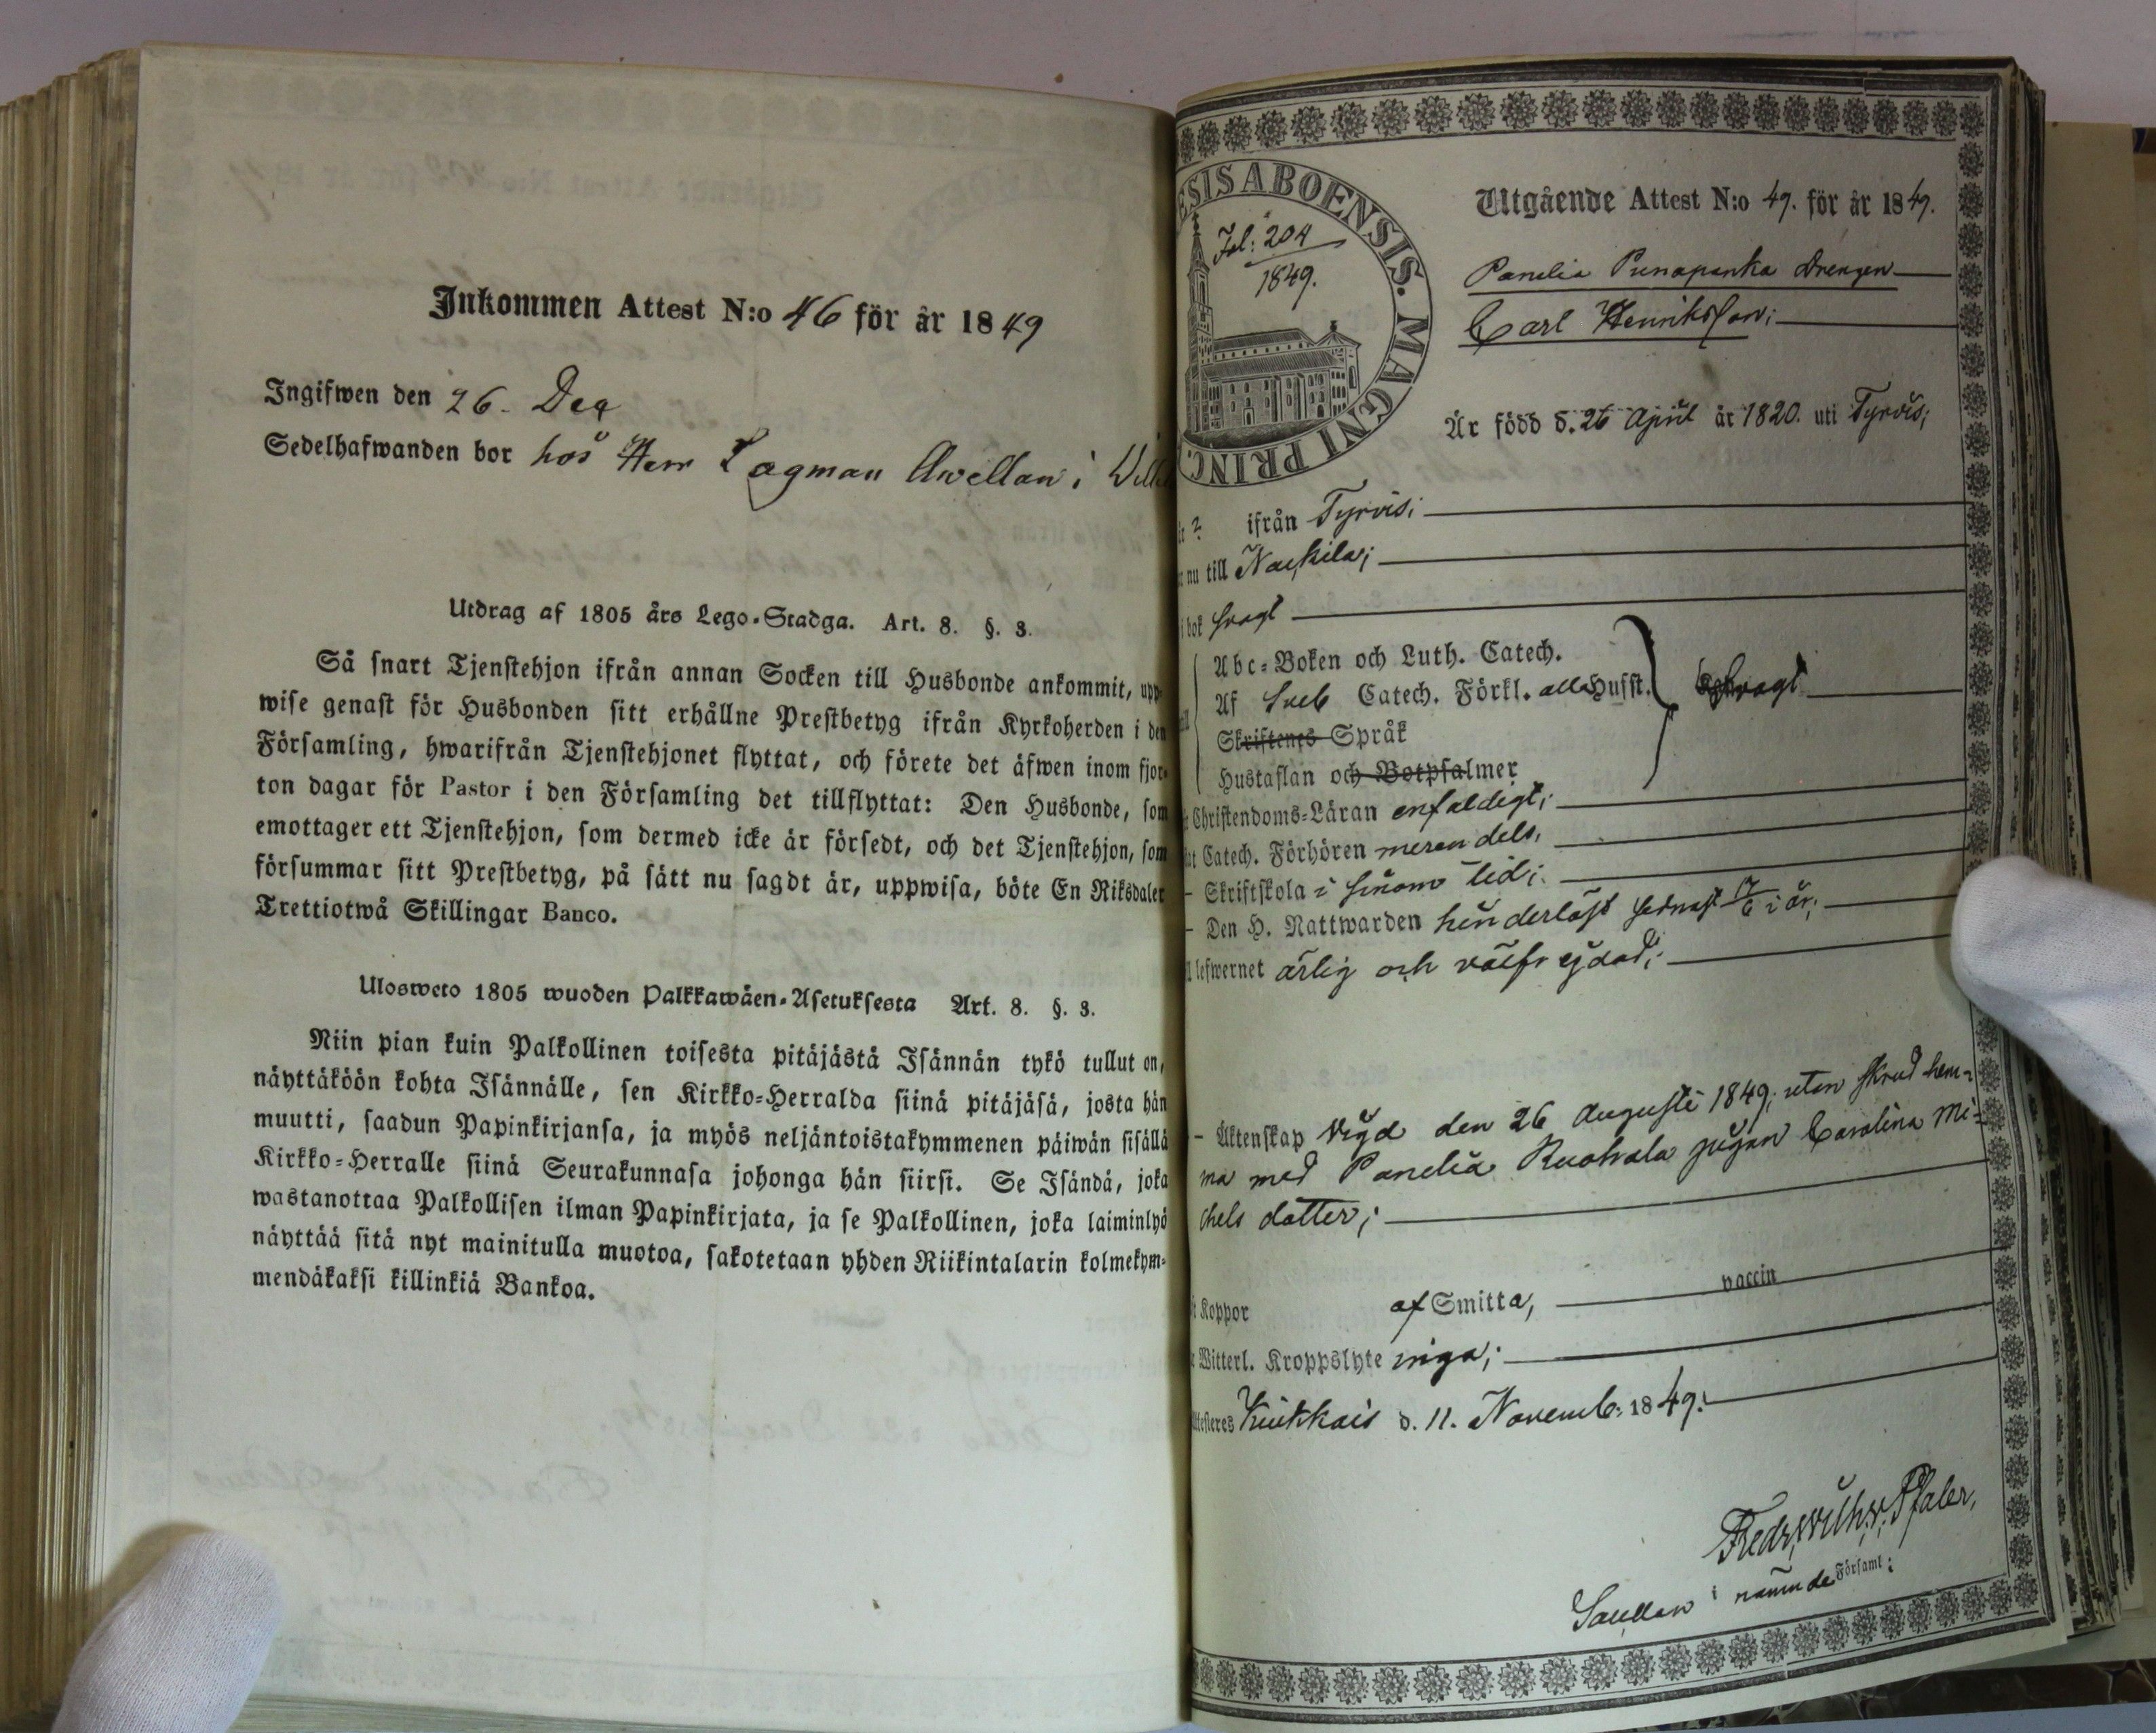 Inkommen Attest N:o 46 för år 1849
Ingifwen den 26. Dec
Sedelhafwanden bor hos Herr Lagman Avellan i
Utdrag af 1805 års Lego-Stadga. Art. 8. §. 3.
Så snart Tjenstehjon ifrån annan Socken till Husbonde ankommit, upp-
wise genast för Husbonden sitt erhållne Prestbetyg ifrån Kyrkoherden i den
Församling, hwarifrån Tjenstehjonet flyttat, och förete det äfwen inom fjor-
ton dagar för Pastor i den Församling det tillflyttat: Den Husbonde, som
emottager ett Tjenstehjon, som dermed icke är försedt, och det Tjenstehjon, som
försummar sitt Prestbetyg, på sätt nu sagdt är, uppwisa, böte En Riksdaler
Trettiotwå Skillingar Banco.
Ulosweto 1805 wuoden Palkkawäen-Asetuksesta Art. 8. §. 3.
Niin pian kuin Palkollinen toisesta pitäjästä Isännän tykö tullut on,
näyttäköön kohta Isännälle, sen Kirkko-Herralda siinä pitäjäsä, josta hän
muutti, saadun Papinkirjansa, ja myös neljäntoistakymmenen päiwän sisällä
Kirkko-Herralle siinä Seurakunnasa johonga hän siirsi. Se Isändä, joka
wastanottaa Palkollisen ilman Papinkirjata, ja se Palkollinen, joka laiminlyö
näyttää sitä nyt mainitulla muotoa, sakotetaan yhden Riikintalarin kolmekym-
mendäkaksi killinkiä Bankoa.
ESIS ABOENSIS. MAGNI PRINC.
Fol: 204
1849.
Utgående Attest N:o 49. för år 1849.
Panelia Punapanka Drengen
Carl Henriksson;
Är född d. 26 April år 1820. uti Tyrvis;
? ifrån Tyrvis;
nu till Nackila;
i bok svagt
Abc-Boken och Luth. Catech.
Af Sveb Catech. Förkl. alla Husst. svagt
Skriftenes Språk
Hustaflan och Botpsalmer
Christendoms-Läran enfaldigt;
Catech. Förhören merendels,
Skriftskola i sinom tid;
Den H. Nattwarden hinderlöst sednast 17/6 i år;
lefwernet ärlig och välfrejdad;
Äktenskap Vigd den 26 Augusti 1849, utan skrud hem-
ma med Panelia Ruohola pigan Carolina Mi-
chels dotter;
Koppor af Smitta, vaccin
Witterl. Kroppslyte inga;
Kiukkais d. 11. Novemb: 1849.
Fredr. Wilh. v. Pfaler,
i nämnde Församl: